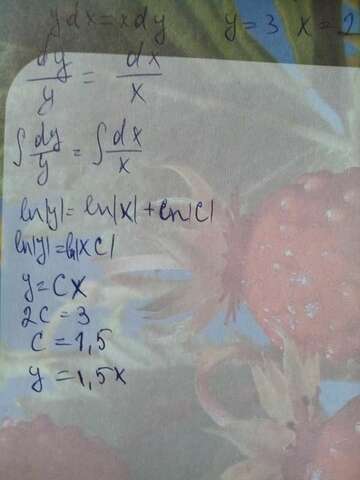 ydx = xdy y = 3 x = 2
dy/y = dx/x
∫dy/y = ∫dx/x
ln|y| = ln|x| + ln|c|
ln|y| = ln|xc|
y = cx
2c = 3
c = 1,5
y = 1,5x